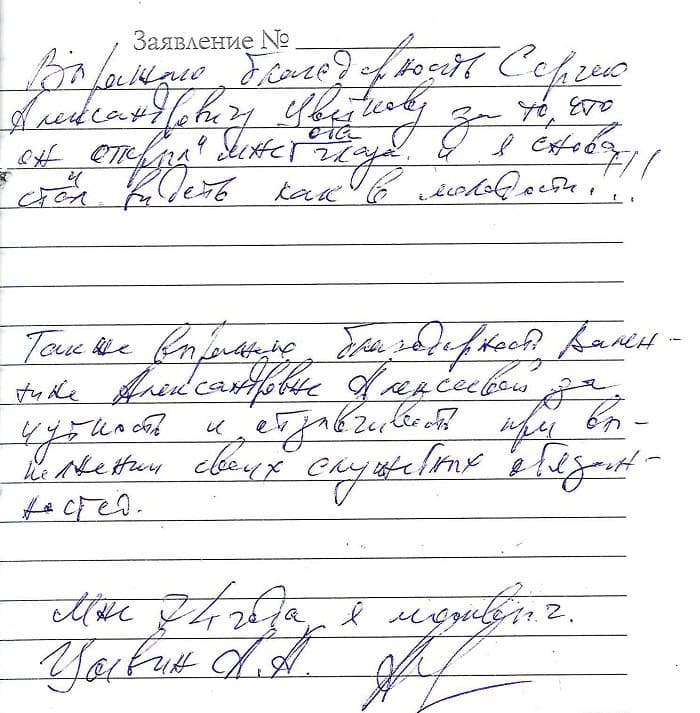 Заявление № ____________
Выражаю благодарность Сергею
Александровичу Цветкову за то, что
он "открыл" мне оба глаза и я снова
стал видеть как в молодости!!!
Также выражаю благодарность Вален-
тине Александровне Алексеевой за
чуткость и отзывчивость при вы-
полнении своих служебных обязан-
ностей.
Мне 74 года, я
А.А.